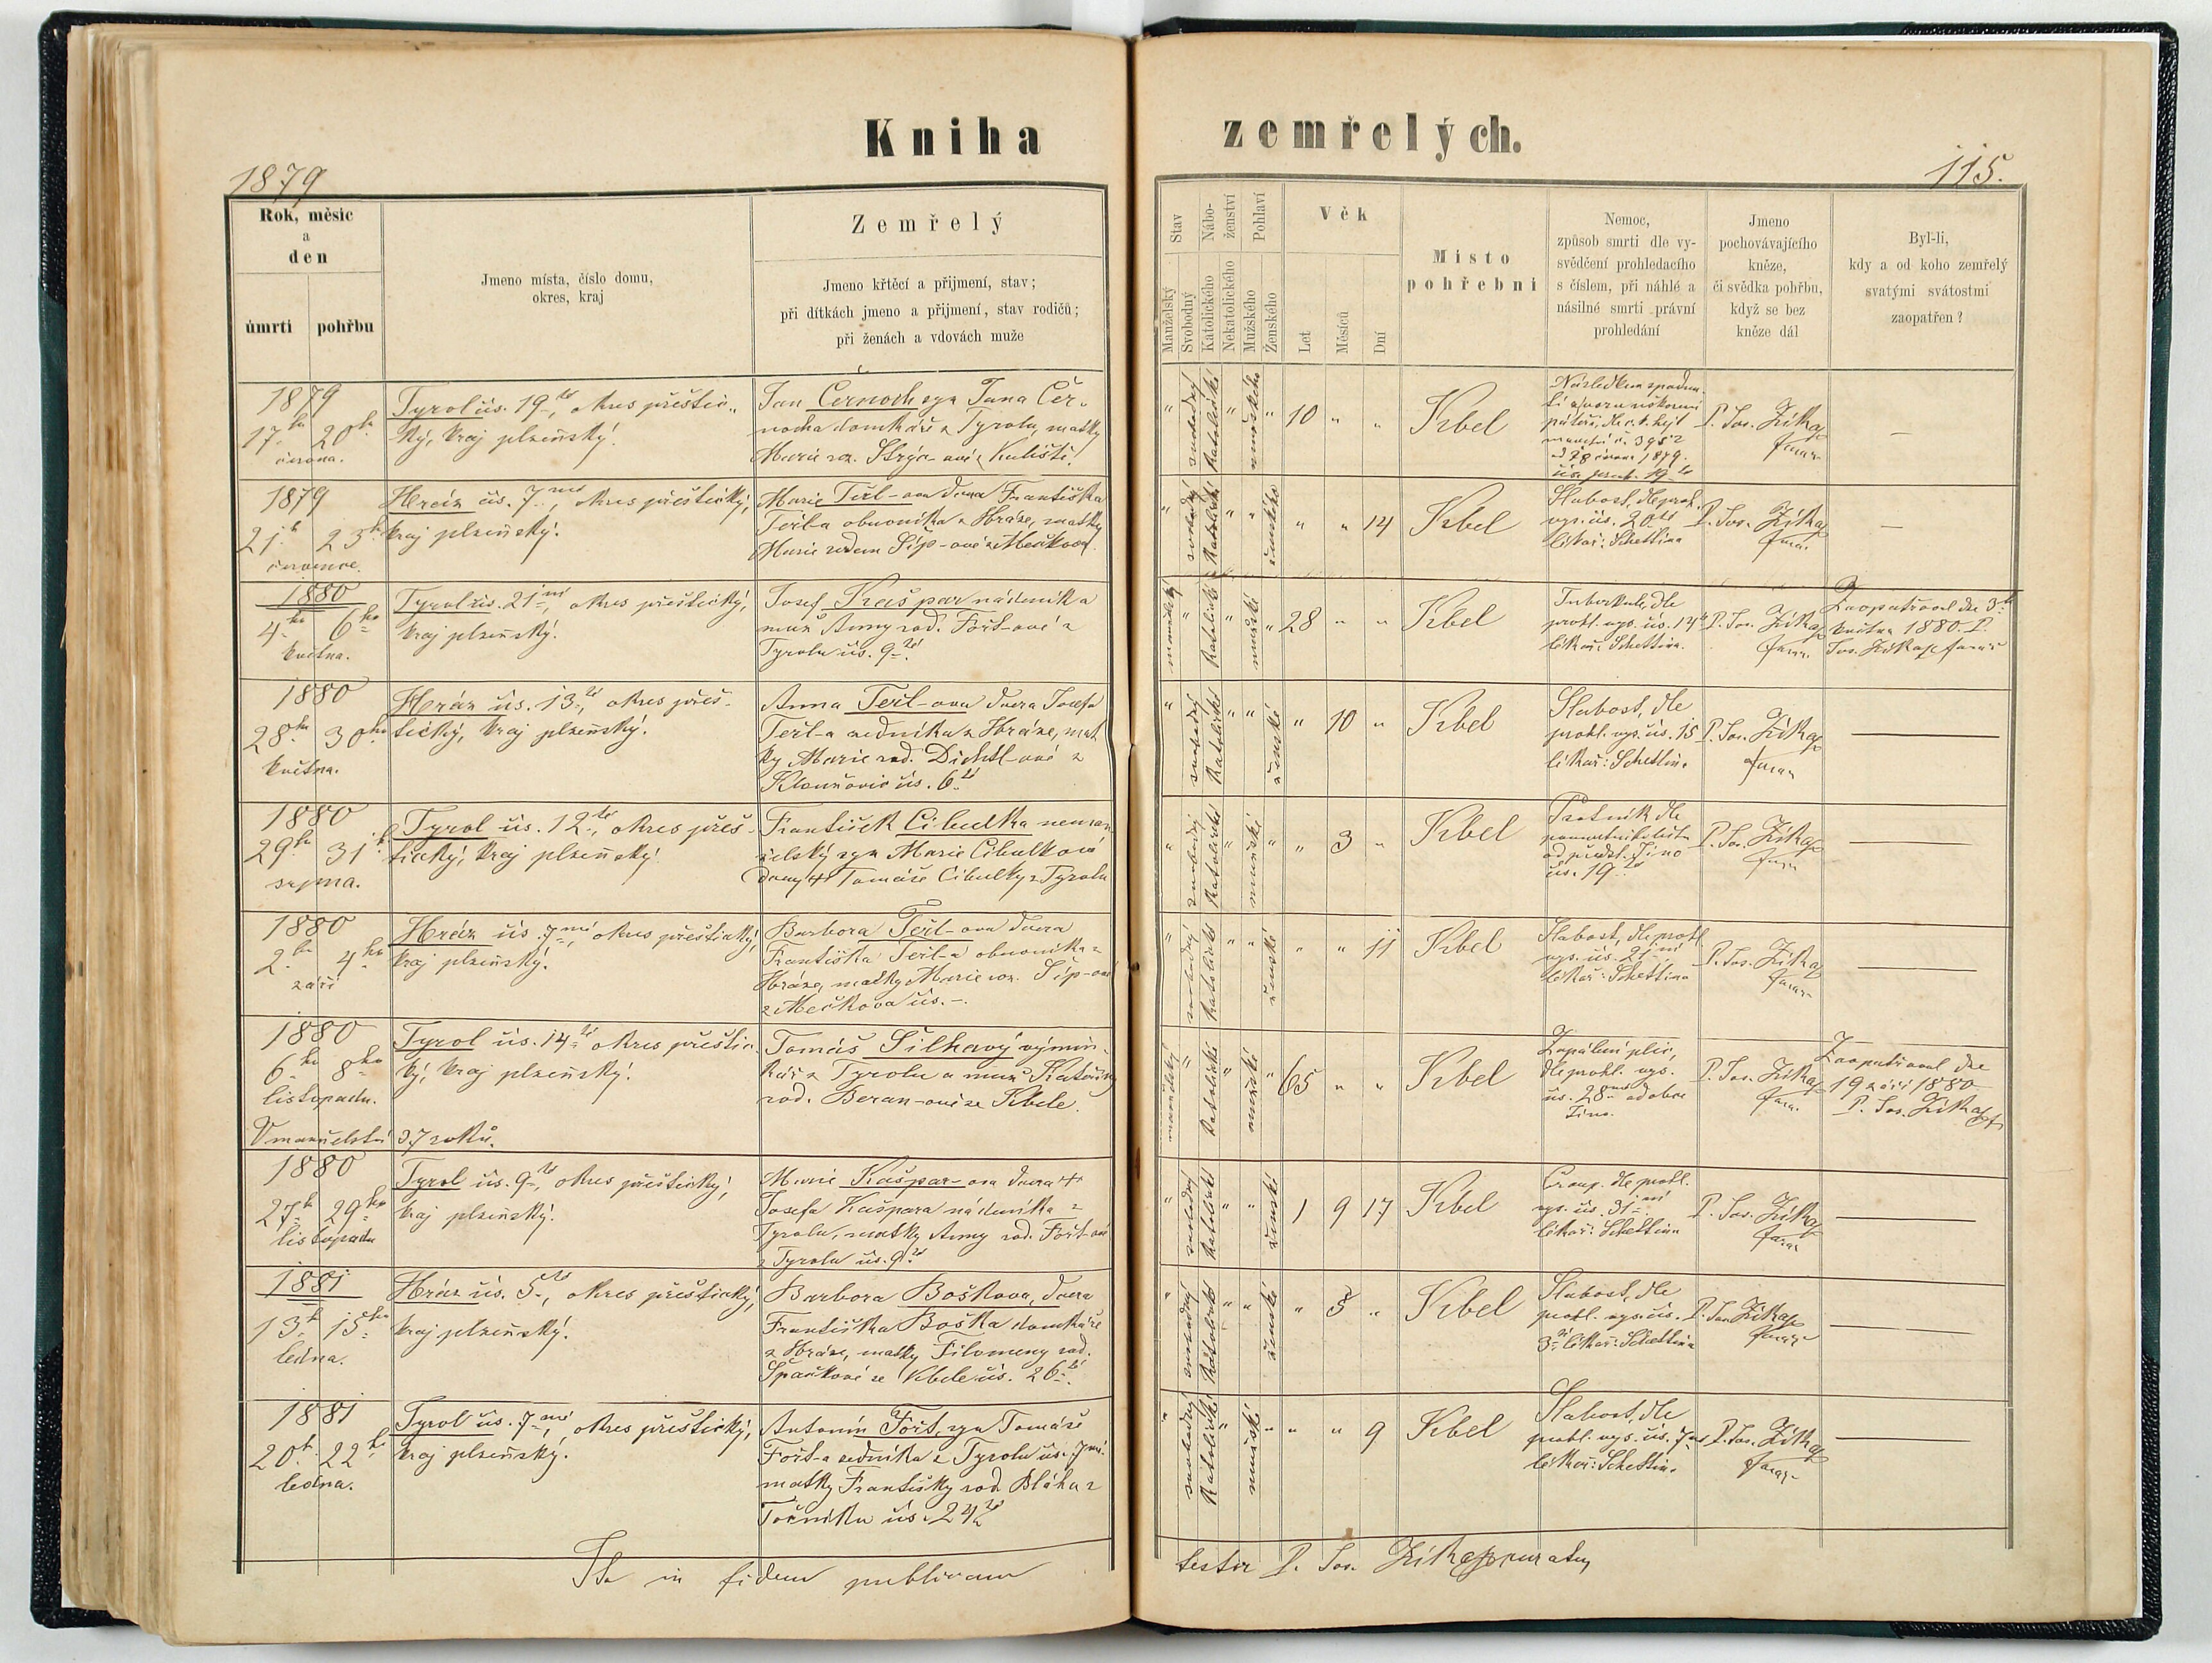 Kniha zemřelých.
1879
115.
Rok, měsíc
a
den
úmrtí
pohřbu
Jmeno místa, číslo domu,
okres, kraj
Zemřelý
Jmeno křtěcí a přijmení, stav;
při dítkách jmeno a přijmení, stav rodičů;
při ženách a vdovách muže
Stav
Manželský
Svobodný
Nábo-
ženství
Katolického
Nekatolického
Pohlaví
Mužského
Ženského
Věk
Let
Měsíců
Dní
Místo
pohřební
Nemoc,
způsob smrti dle vy-
svědčení prohledacího
s číslem, při náhlé a
násilné smrti právní
prohledání
Jmeno
pochovávajícího
kněze,
či svědka pohřbu,
když se bez
kněze dál
Byl-li,
kdy a od koho zemřelý
svatými svátostmi
zaopatřen?
1879
17ho 20ho
června.
Tyrol čís. 19té, okres přeštic-
ký, kraj plzeňský.
Jan Černoch syn Jana Čer-
nocha domkáře z Tyrolu, matky
Marie roz.
svobodný katolické mužského
10
Krbel
Následkem
páteře, dle c.k. hejt
č. 3952
od 18 června 1879.
P. Jos. Zíka
farář
1879
21ho 23ho
července.
Hráz čís. 7mé, okres přeštický,
kraj plzeňský.
Marie Teřl-ova dcera Františka
Teřla obuvníka z Hráze, matky
Marie rodem Šíp-ové z Mečkova.
svobodný katolické ženské
14
Kbel
Slabost, dle proh.
vys. čís. 20té
lékař: Schettina
P. Jos. Zíka
farář
1880
4ho 6ho
května.
Tyrol čís. 21ní, okres přeštický,
kraj plzeňský.
Josef Kašpar nádeník a
muž Anny rod. Fořt-ové z
Tyrolu čís. 9té.
manželský katolické mužské
28
Kbel
Tuberkule, dle
prohl. vys. čís. 14
lékař: Schettina.
P. Jos. Zíka
farář
Zaopatřoval dne 3ho
května 1880. P.
Jos. Zíka farář
1880
28ho 30ho
května.
Hráz čís. 13té, okres přeš-
tický, kraj plzeňský.
Anna Teřl-ova dcera Josefa
Teřl-a zedníka z Hráze, mat
ky Marie rod. Dichtl-ové z
čís. 6té
svobodný katolické ženské
10
Kbel
Slabost, dle
prohl. vys. čís. 15
lékař: Schettin.
P. Jos. Zíka
farář
1880
29ho 31ho
srpna.
Tyrol čís. 12té, okres přeš-
tický, kraj plzeňský.
František Cibulka neman
želský syn Marie Cibulkové
dcery † Tomáše Cibulky z Tyrolu
svobodný katolické mužské
3
Kbel
Psotník dle
od
čís. 19té
P. Jos. Zíka
farář
1880
2ho 4ho
září
Hráz čís. 7mé, okres přeštický,
kraj plzeňský.
Barbora Teřl-ova dcera
Františka Teřl-a obuvníka z
Hráze, matky Marie roz. Šíp-ové
z Mečkova čís. –.
svobodný katolické ženské
11
Kbel
Slabost, dle prohl
vys. čís. 21ní
lékař: Schettina
P. Jos. Zíka
farář
1880
6ho 8ho
listopadu.
V manželství 37 roků.
Tyrol čís. 14té okres přeštic
ký, kraj plzeňský.
Tomáš Šilhavý výmin-
kář z Tyrolu a muž Kateřiny
rod. Beran-ové ze Kbele.
manželský katolické mužské
65
Kbel
Zapálení plic,
dle prohl. vys.
čís. 28mé od obce
P. Jos. Zíka
farář
Zaopatřoval dne
19 září 1880
P. Jos. Zíka
1880
27ho 29ho
listopadu
Tyrol čís. 9té, okres přeštický,
kraj plzeňský.
Marie Kašpar-ova dcera †
Josefa Kašpara nádeníka z
Tyrolu, matky Anny rod. Fořt-ové
z Tyrolu čís. 9té
svobodný katolické ženské
1 9 17
Kbel
Croup. dle prohl.
vys. čís. 31ní.
lékař: Schettina
P. Jos. Zíka
farář
1881
13ho 15ho
ledna.
Hráz čís. 5té, okres přeštický,
kraj plzeňský.
Barbora Boškova, dcera
Františka Boška domkáře
z Hráze, matky Filomeny rod.
Špačkové ze Kbele čís. 26té.
svobodný katolické ženské
5
Kbel
Slabost, dle
prohl. vys. čís.
3tí lékař: Schettina
P. Jos. Zíka
farář
1881
20ho 22ho
ledna.
Tyrol čís. 7mé, okres přeštický,
kraj plzeňský.
Antonín Fořt, syn Tomáše
Fořt-a zedníka z Tyrolu čís. 7mé
matky Františky rod. Bláha z
Točníku čís. 24té
svobodný katolické mužské
9
Kbel
Slabost, dle
prohl. vys. čís. 7mé
lékař: Schettina
P. Jos. Zíka
farář
Ita in fidem publicam
testor P. Jos. Zíka curatus